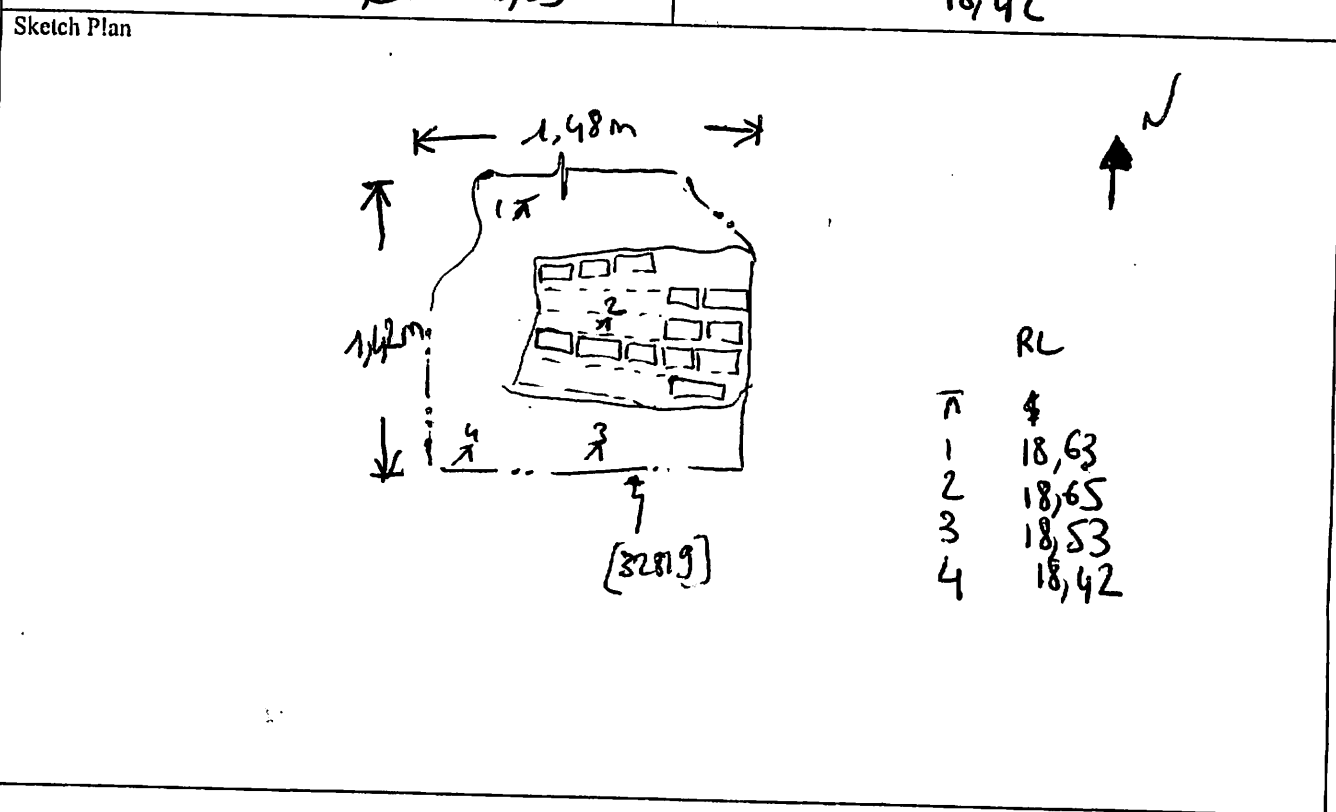 18,42
Sketch Plan
N
1,48m
1
2
1,42m
4 3
[32819]
RL
⊼ $
1 18,63
2 18,65
3 18,53
4 18,42